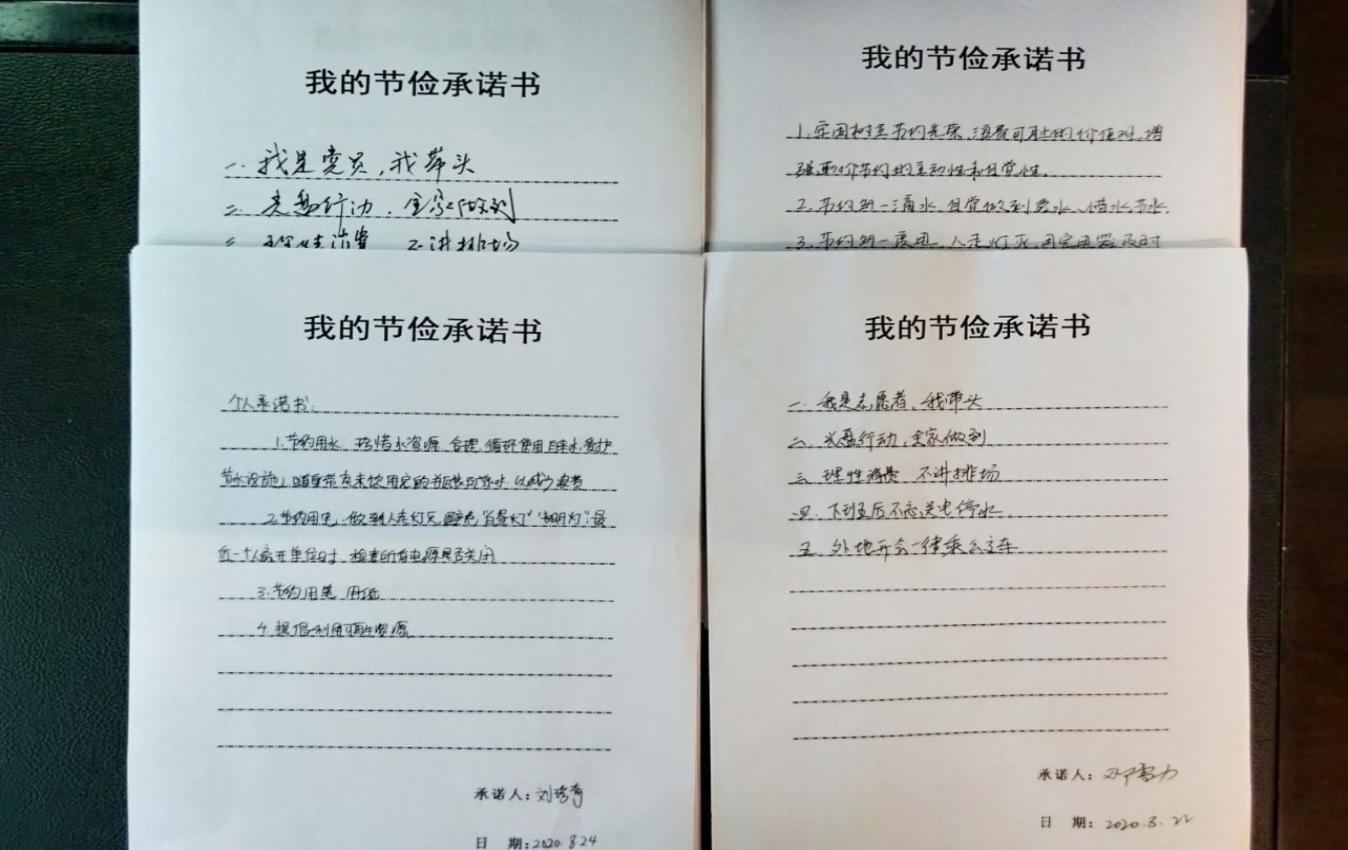 我的节俭承诺书
一、我是党员,我带头
二、光盘行动,全家做到
三、理性消费 不讲排场
我的节俭承诺书
1.牢固树立节约光荣,浪费可耻的价值观,增
强厉行节约的主动性和自觉性。
2.节约每一滴水,自觉做到爱水、惜水、节水.
3.节约每一度电,人走灯灭,用完电器及时
我的节俭承诺书
个人承诺书:
1.节约用水,珍惜水资源,合理、循环使用自来水,爱护
节水设施,随手带走未饮用完的瓶装饮水,以减少浪费
2.节约用电,做到人走灯灭,避免“白昼灯”“长明灯”;最
后一个人离开单位时,检查所有电源是否关闭
3.节约用笔、用纸
4.提倡利用可再生资源
承诺人:刘
日 期:2020.8.24
我的节俭承诺书
一、我是志愿者,我带头
二、光盘行动,全家做到
三、理性消费 不讲排场
四、下班后不忘关电停水
五、外地开会一律乘公交车
承诺人:
日 期:2020.8.22